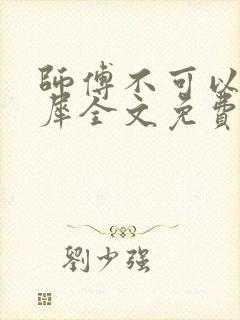 師傅不可以
犀全文免費
劉少强